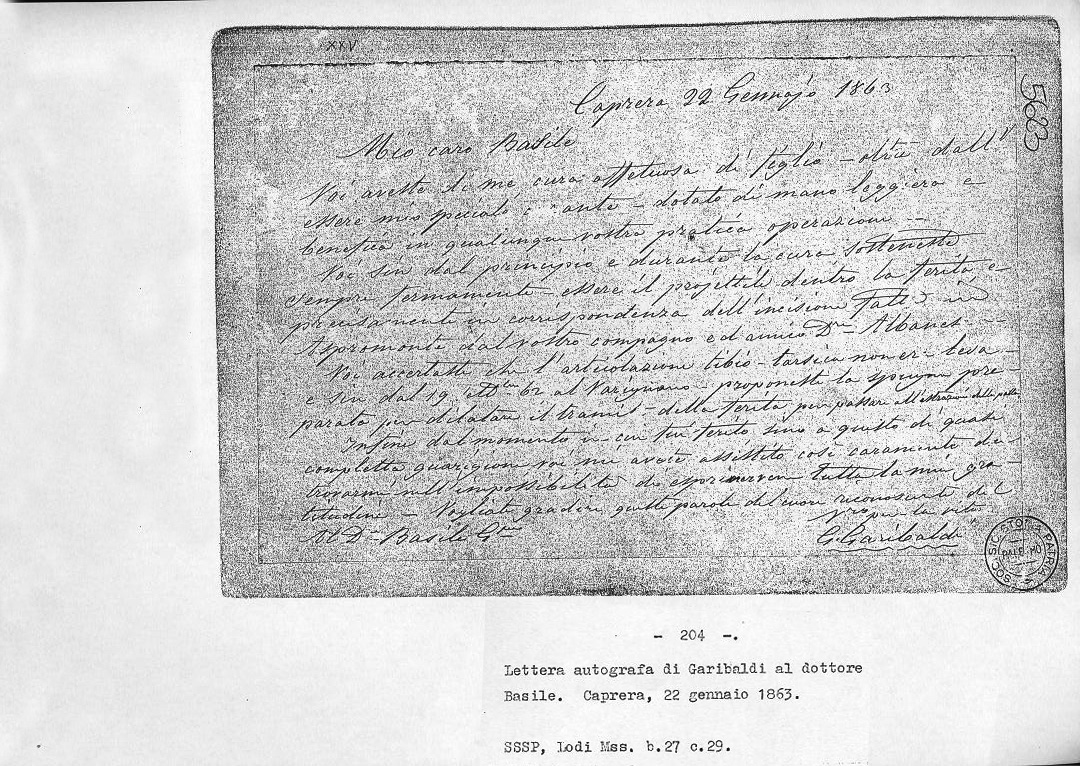 XXV
5623
Caprera 22 Gennajo 1863
Mio caro Basile
Voi aveste di me cura affettuosa di figlio - oltre dall'
essere mio speciale ante - dotato di mano leggiera e
benefica in qualunque vostra pratica operazione -
Voi sin dal principio e durante la cura sosteneste
sempre fermamente essere il projettile dentro la ferita e
precisamente in corrispondenza dell'incisione fatta in
Aspromonte dal vostro compagno ed amico Dre Albanese -
Voi accertaste che l'articolazione tibio-tarsica non er leva -
e sin dal 19 62 al Varignano - proponeste la spugna pre-
parata per dilatare il tramite della ferita per passare all'estrazione della palla
Infine dal momento in cui fui ferito, sino a questo di quasi
completa guarigione voi mi avete assistito così caramente da
trovarmi nell'impossibilità di esprimervi tutta la mia gra-
titudine - Vogliate gradire queste parole del cuore riconoscente del
Vro per la vita
Al D - Basile G
G. Garibaldi
SOC. SIC. STORIA PATRIA
PALERMO
- 204 -.
Lettera autografa di Garibaldi al dottore
Basile. Caprera, 22 gennaio 1863.
SSSP, Lodi Mss. b.27 c.29.